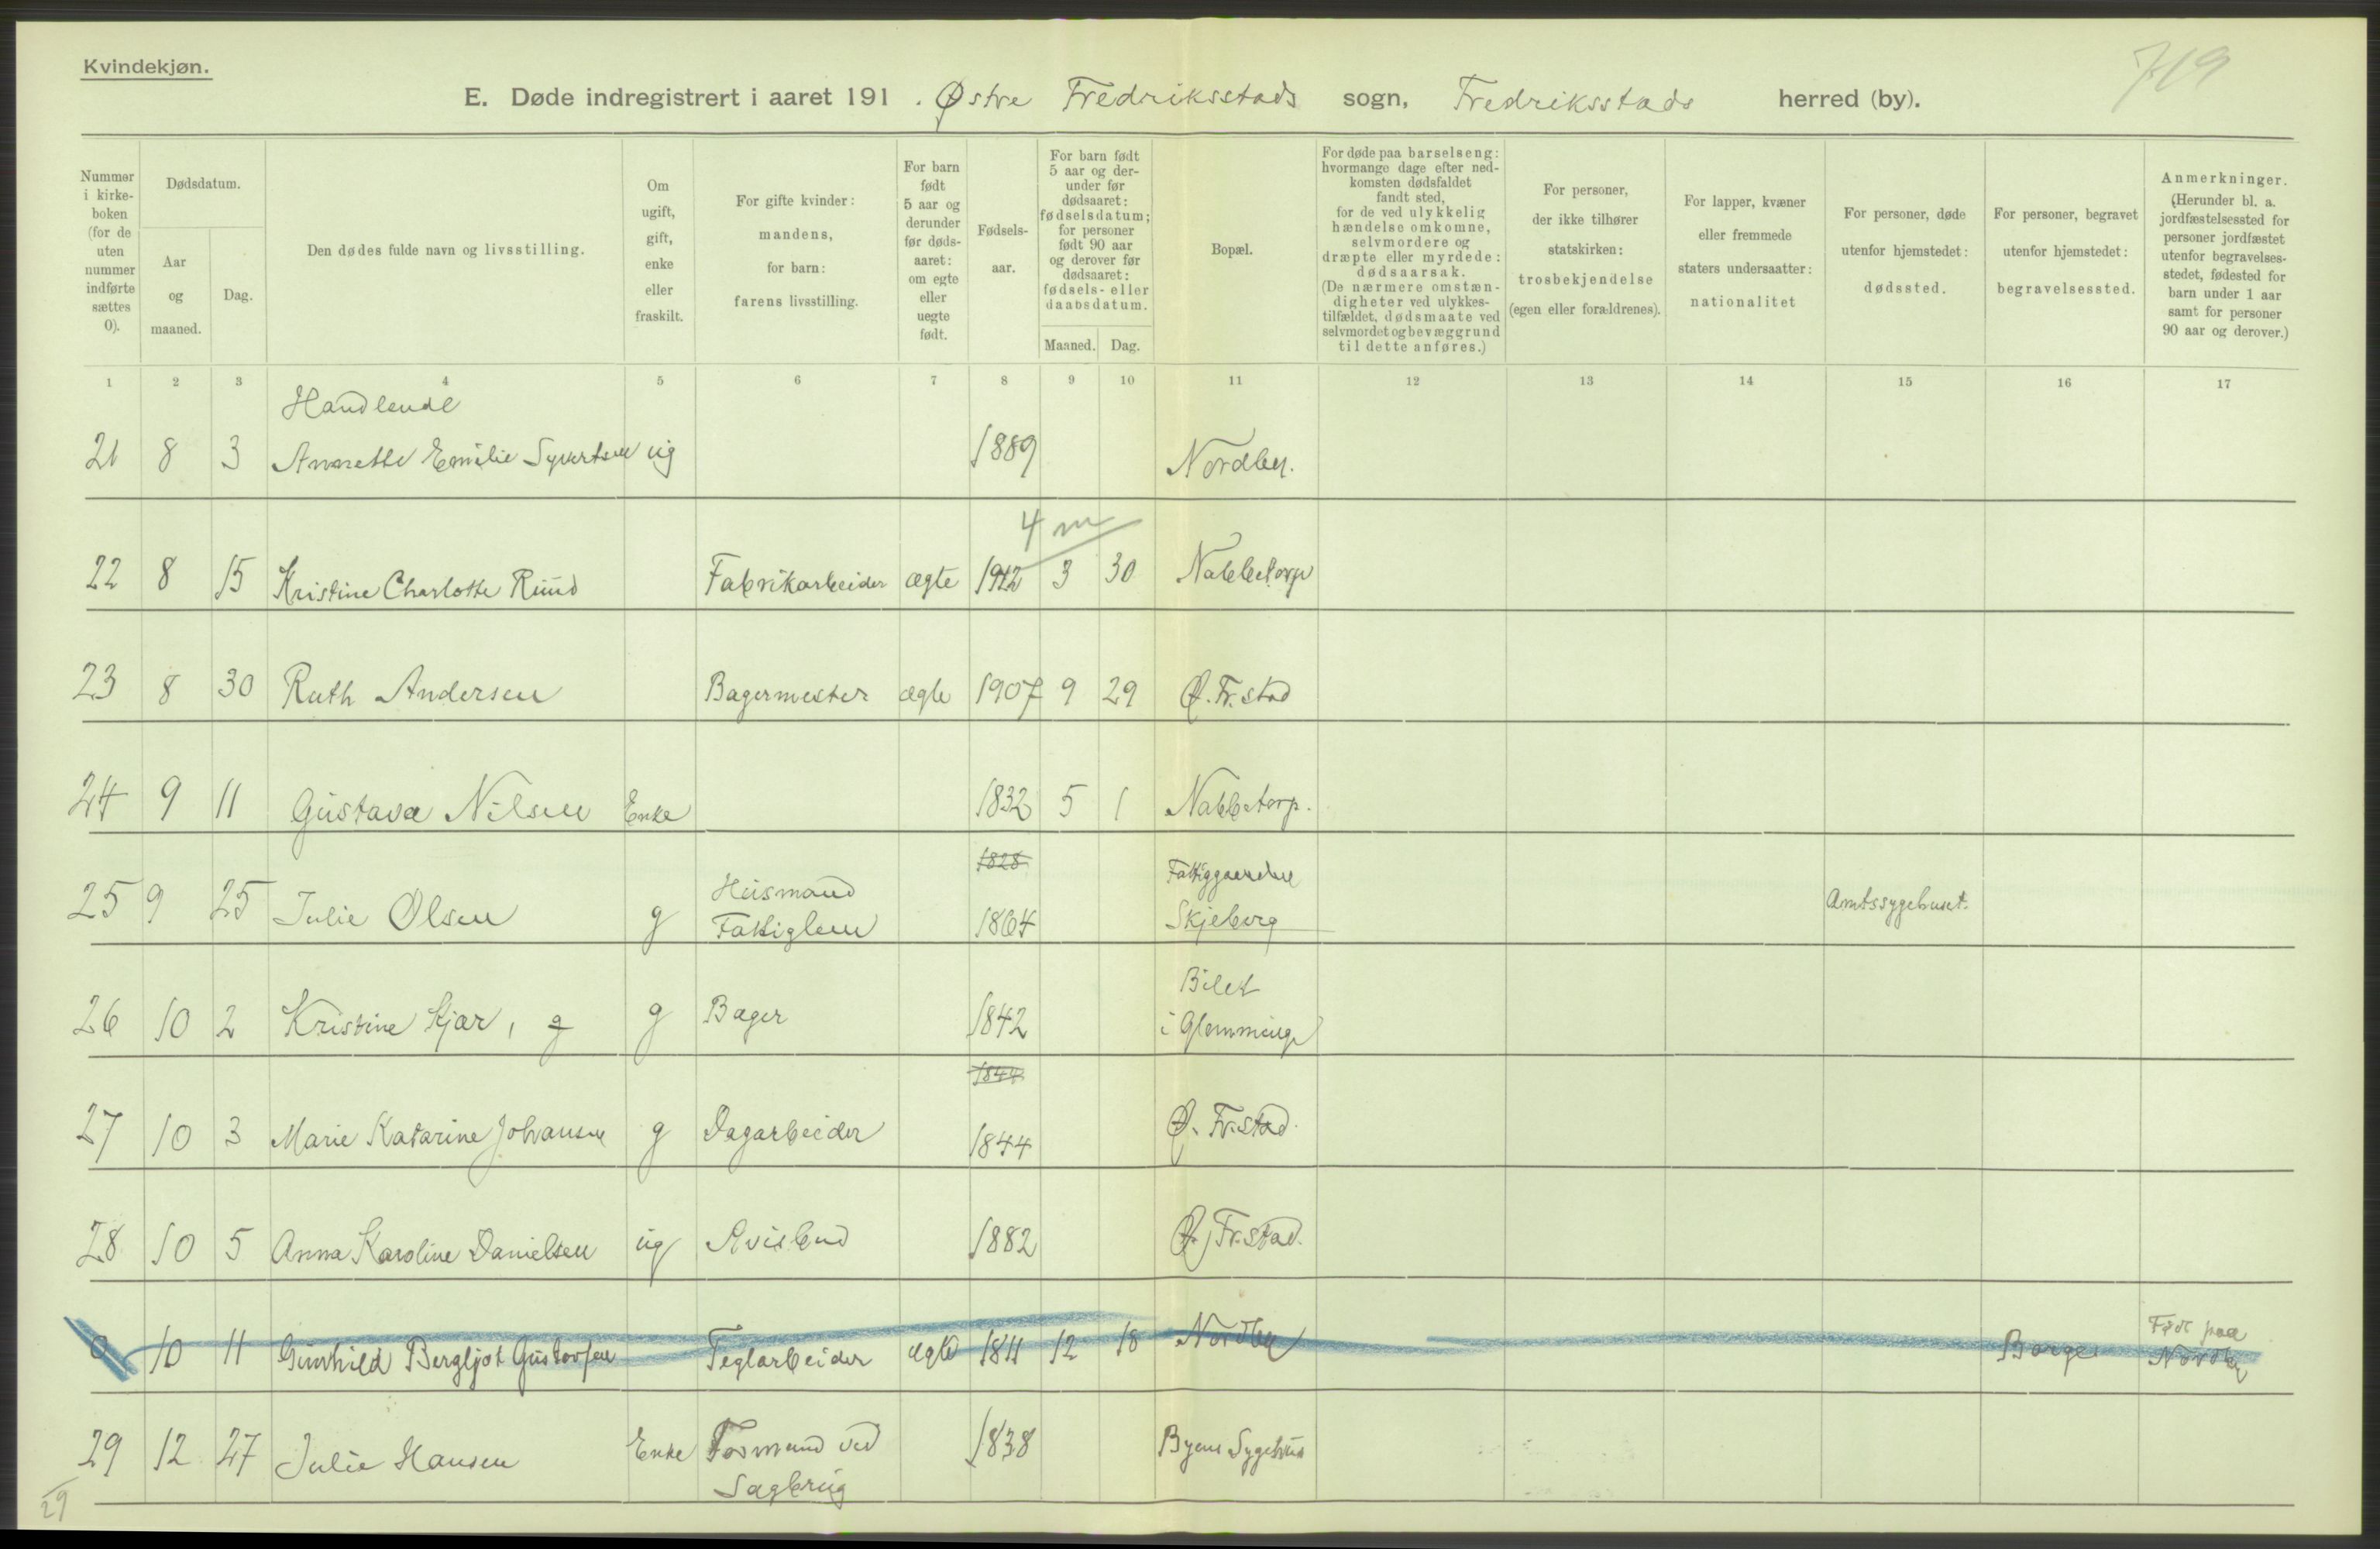 Kvindekjøn.
719
E. Døde indregistrert i aaret 191 . Østre Fredriksstads sogn, Fredriksstads herred (by).
Nummer i kirke-boken (for de uten nummer indførte sættes 0).
Dødsdatum.
Aar og maaned.
Dag.
Den dødes fulde navn og livsstilling.
Om ugift, gift, enke eller fraskilt.
For gifte kvinder: mandens, for barn: farens livsstilling.
For barn født 5 aar og derunder før døds-aaret: om egte eller uegte født.
Fødsels-aar.
For barn født 5 aar og der-under før dødsaaret: fødselsdatum; for personer født 90 aar og derover før dødsaaret: fødsels- eller daabsdatum.
Maaned. Dag.
Bopæl.
For døde paa barselseng: hvormange dage efter ned-komsten dødsfaldet fandt sted, for de ved ulykkelig hændelse omkomne, selvmordere og dræpte eller myrdede: dødsaarsak. (De nærmere omstæn-digheter ved ulykkes-tilfældet, dødsmaate ved selvmordet og bevæggrund til dette anføres.)
For personer, der ikke tilhører statskirken: trosbekjendelse (egen eller forældrenes).
For lapper, kvæner eller fremmede staters undersaatter: nationalitet
For personer, døde utenfor hjemstedet: dødssted.
For personer, begravet utenfor hjemstedet: begravelsessted.
Anmerkninger. (Herunder bl. a. jordfæstelsessted for personer jordfæstet utenfor begravelses-stedet, fødested for barn under 1 aar samt for personer 90 aar og derover.)
1 2 3 4 5 6 7 8 9 10 11 12 13 14 15 16 17
Handlende
21 8 3 Annette Emilie Syvertsen ug 1889 Nordby.
4 m
22 8 15 Kristine Charlotte Ruud Fabrikarbeider ægte 1912 3 30 Nabbetorp
23 8 30 Ruth Andersen Bagermester ægte 1907 9 29 Ø. Fr.stad
24 9 11 Gustava Nilsen Enke 1832 5 1 Nabbetorp.
1828 Fattiggaarden
25 9 25 Julie Olsen g Husmand 1864 Skjeberg Amtssygehuset.
Fattiglem
Bilet
26 10 2 Kristine Kjær, g g Bager 1842 i Glemminge
1844
27 10 3 Marie Katarine Johansen g Dagarbeider 1844 Ø. Fr.stad.
28 10 5 Anna Karoline Danielsen ug Avisbud 1882 Ø. Fr.stad.
0 10 11 Gunhild Bergljot Gustavsen Teglarbeider ægte 1811 12 18 Nordby Borge Født paa
Nordby
29 12 27 Julie Hansen Enke Formand ved 1838 Byens Sygehus
Sagbrug
29